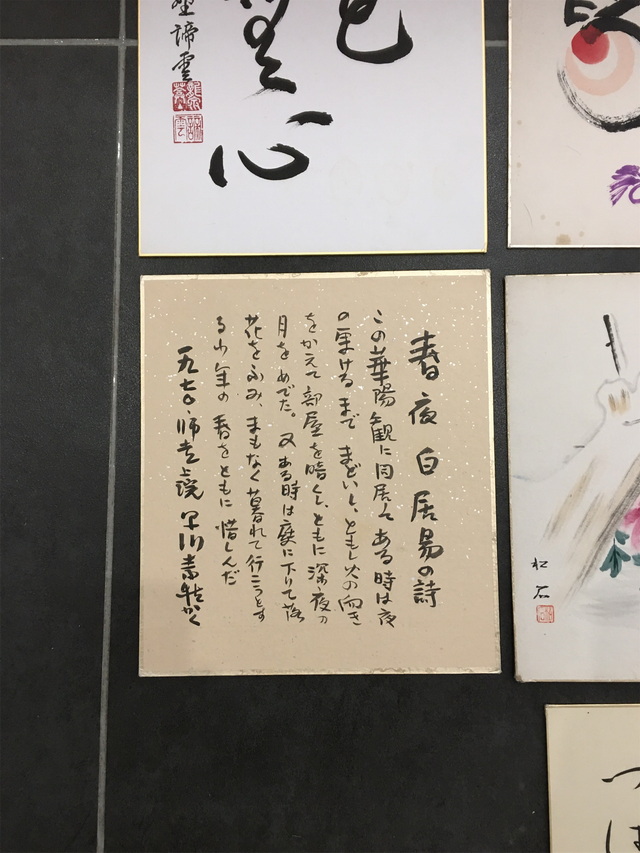 心
諦雲
春夜 白居易の詩
この華陽観に同居して ある時は夜
の更けるまで まどいし、ともし火の向き
をかえて 部屋を暗くし、ともに深夜の
月をめでた。又ある時は庭に下りて落
花をふみ、まもなく暮れて行こうとす
る少年の春をともに惜しんだ
一九七〇・師走上浣 早川素 かく
松石